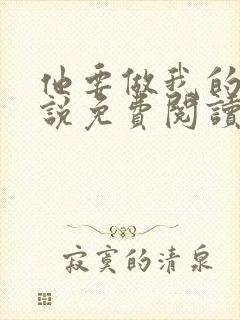 他要做我的
說免費閱讀
寂寞的清泉